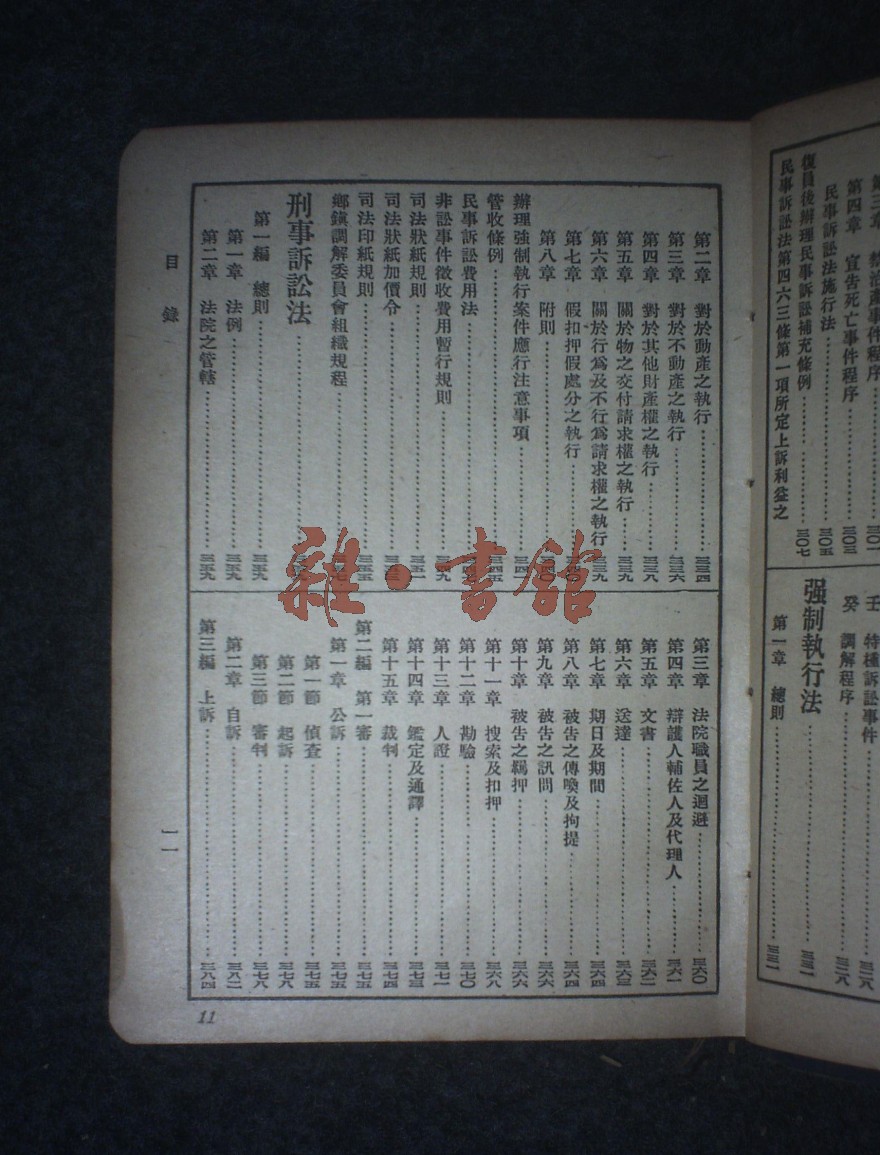 第三章 禁治產事件程序……三〇一
第四章 宣告死亡事件程序……三〇三
民事訴訟法施行法……三〇五
復員後辦理民事訴訟補充條例……三〇七
民事訴訟法第四六三條第一項所定上訴利益之
壬 特種訴訟事件……三二八
癸 調解程序……三二八
强制執行法……三三一
第一章 總則……三三一
第二章 對於動產之執行……三三四
第三章 對於不動產之執行……三三六
第四章 對於其他財產權之執行……三三八
第五章 關於物之交付請求權之執行……三三九
第六章 關於行爲及不行爲請求權之執行……三三九
第七章 假扣押假處分之執行……三四〇
第八章 附則……三四〇
辦理強制執行案件應行注意事項……三四一
管收條例……三四五
民事訴訟費用法……
非訟事件徵收費用暫行規則……三四九
司法狀紙規則……三五一
司法狀紙加價令……
司法印紙規則……三五五
鄉鎮調解委員會組織規程……
刑事訴訟法……
第一編 總則……三五九
第一章 法例……三五九
第二章 法院之管轄……三五九
第三章 法院職員之迴避……三六〇
第四章 辯護人輔佐人及代理人……三六一
第五章 文書……三六二
第六章 送達……三六三
第七章 期日及期間……三六四
第八章 被告之傳喚及拘提……三六四
第九章 被告之訊問……三六六
第十章 被告之羈押……三六六
第十一章 搜索及扣押……三六八
第十二章 勘驗……三七〇
第十三章 人證……三七一
第十四章 鑑定及通譯……三七三
第十五章 裁判……三七四
第二編 第一審……三七五
第一章 公訴……三七五
第一節 偵查……三七五
第二節 起訴……三七八
第三節 審判……三七八
第二章 自訴……三八二
第三編 上訴……三八四
目錄
一一
11
雜·書館